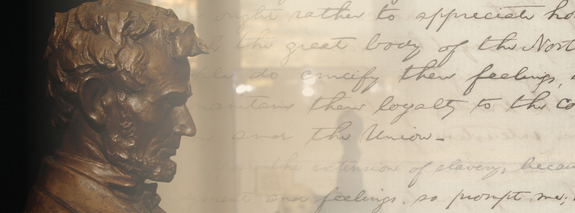 right rather to appreciate ho
the great body of the Nort
do crucify their feelings,
maintain their loyalty to the co
and the Union.
the extension of slavery, becau
and feelings, so prompt me,